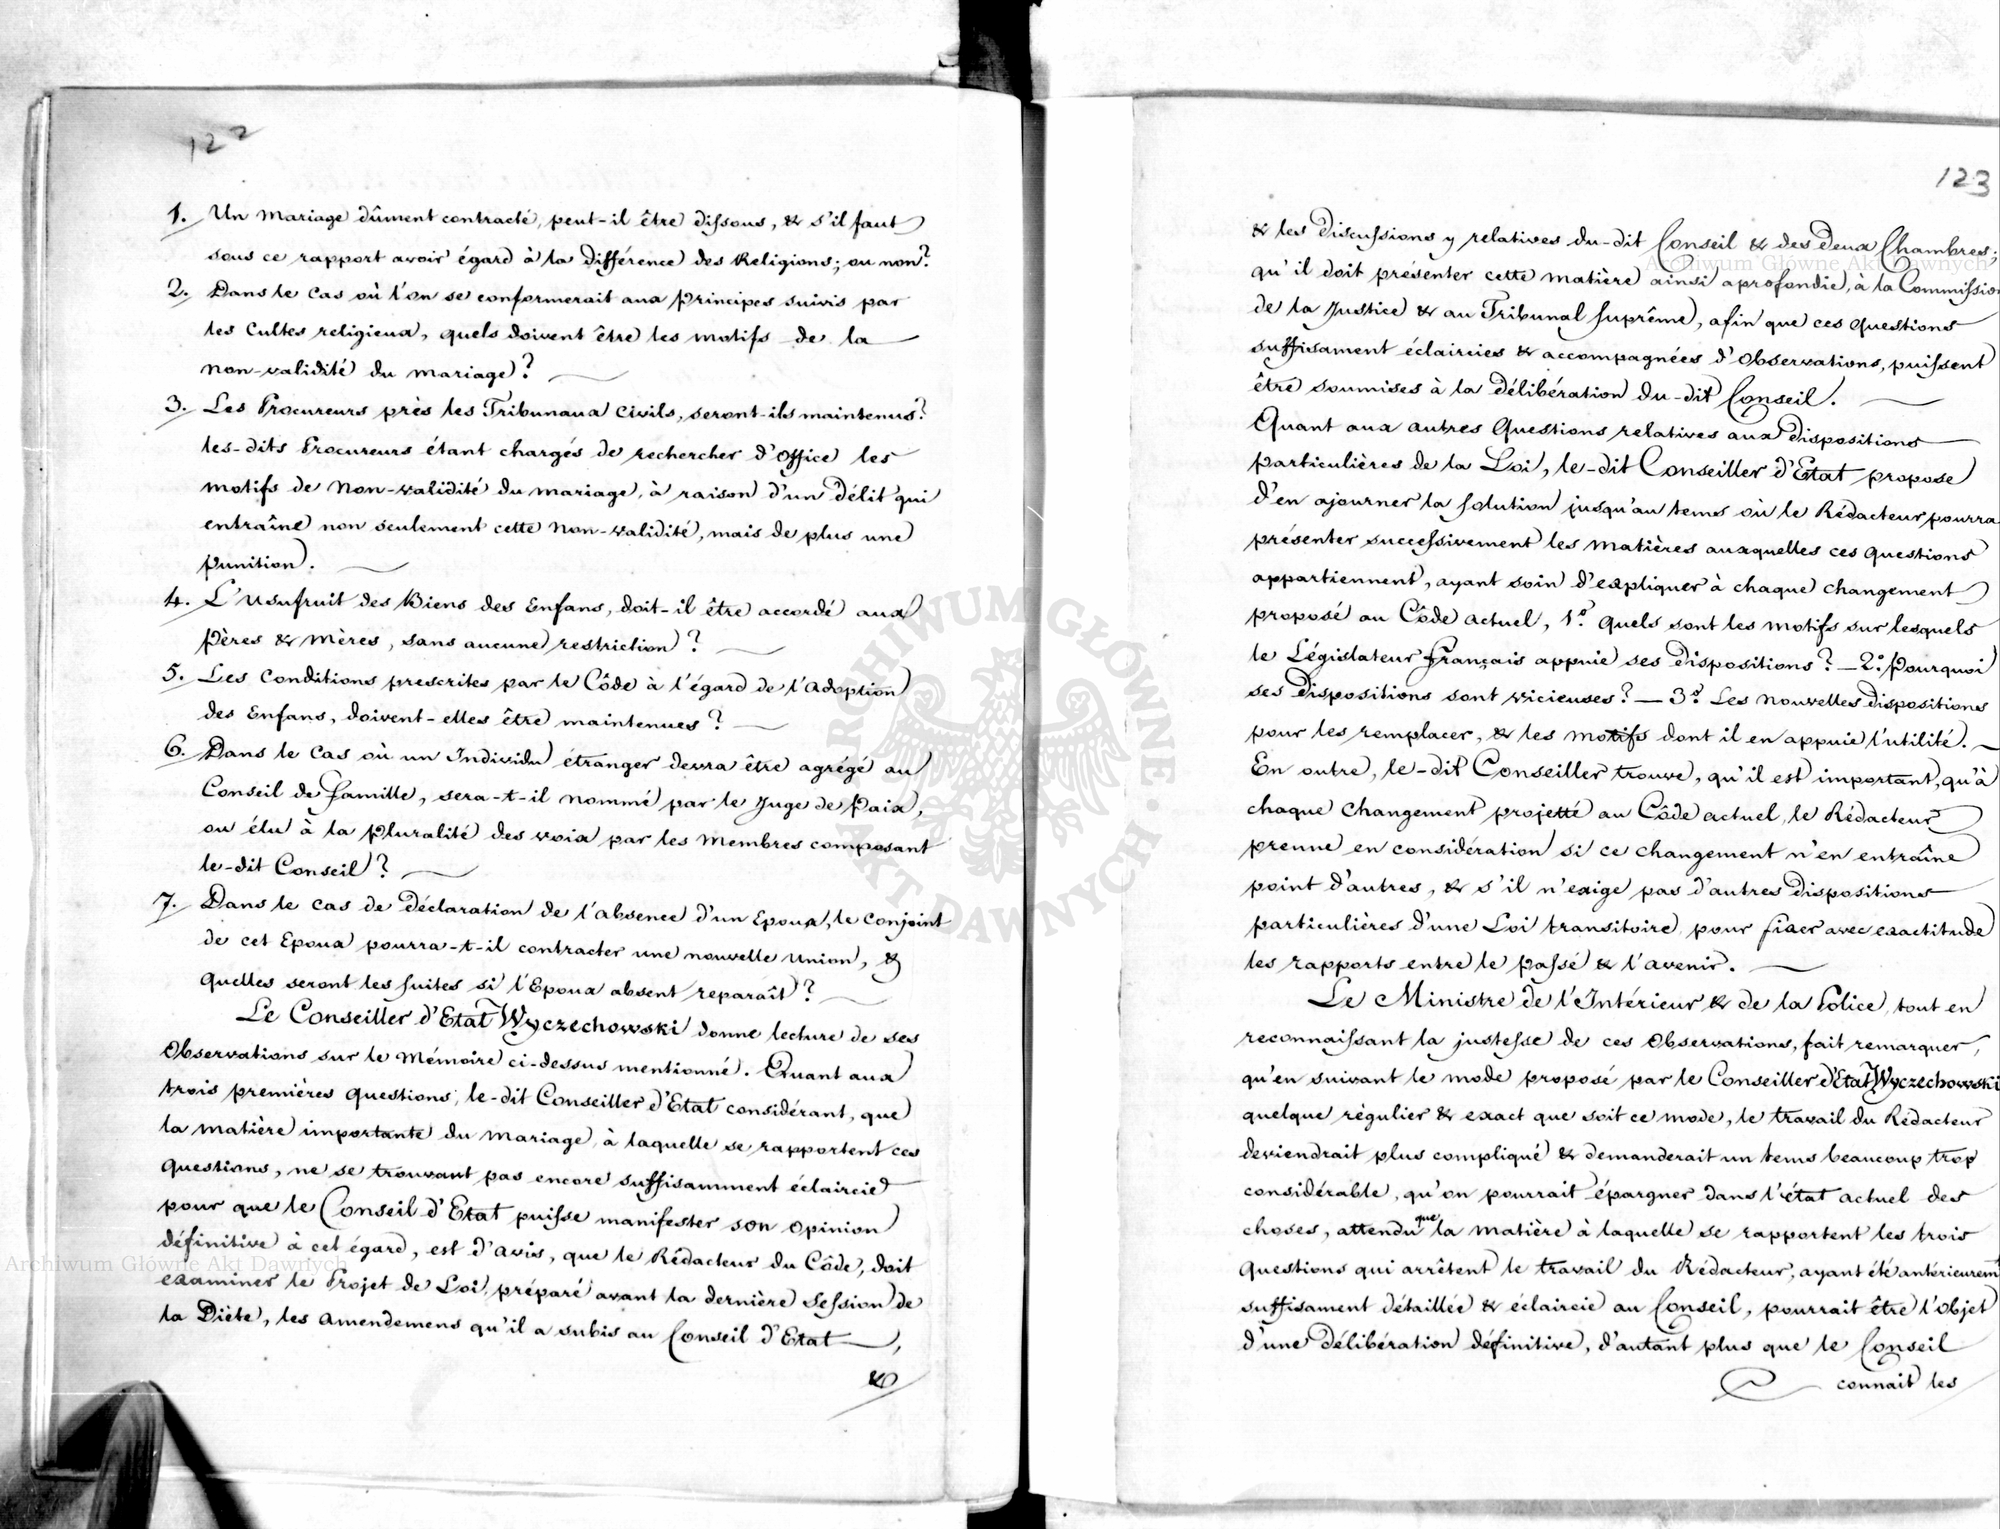 122
1. Un Mariage dûment contracté, peut-il être dissous, & s'il faut
sous ce rapport avoir égard à la différence des Religions; ou non?
2. Dans le cas où l'on se conformerait aux Principes suivis par
les Cultes religieux, quels doivent être les motifs de la
non-validité du mariage? —
3. Les Procureurs près les Tribunaux Civils, seront-ils maintenus?
les-dits Procureurs étant chargés de rechercher d'Office les
motifs de Non-validité du mariage, à raison d'un délit qui
entraîne non seulement cette Non-validité, mais de plus une
punition. —
4. L'Usufruit des Biens des Enfans, doit-il être accordé aux
Pères & Mères, sans aucune restriction? —
5. Les Conditions prescrites par le Côde à l'égard de l'Adoption
des Enfans, doivent-elles être maintenues? —
6. Dans le Cas où un Individu étranger devra être agrégé au
Conseil de famille, sera-t-il nommé par le Juge de Paix,
ou élu à la pluralité des voix par les Membres composant
le-dit Conseil? —
7. Dans le cas de Déclaration de l'absence d'un Epoux, le Conjoint
de cet Epoux pourra-t-il contracter une nouvelle Union, &
quelles seront les suites si l'Epoux absent reparaît? —
Le Conseiller d'Etat Wyczechowski donne lecture de ses
Observations sur le Mémoire ci-dessus mentionné. Quant aux
trois premières Questions, le-dit Conseiller d'Etat considérant, que
la matière importante du Mariage, à laquelle se rapportent ces
Questions, ne se trouvant pas encore suffisamment éclaircie
pour que le Conseil d'Etat puisse manifester son Opinion
définitive à cet égard, est d'avis, que le Rédacteur du Côde, doit
examiner le Projet de Loi, préparé avant la dernière Session de
la Diète, les Amendemens qu'il a subis au Conseil d'Etat —,
&
123
& les Discussions y relatives du-dit Conseil & des Deux Chambres;
qu'il doit présenter cette matière ainsi aprofondie, à la Commission
de la Justice & au Tribunal Suprême, afin que ces Questions
suffisament éclaircies & accompagnées d'Observations, puissent
être soumises à la Délibération du-dit Conseil. —
Quant aux autres Questions relatives aux Dispositions
particulières de la Loi, le-dit Conseiller d'Etat propose
d'en ajourner la solution jusqu'au tems où le Rédacteur pourra
présenter successivement les Matières auxquelles ces Questions
appartiennent, ayant soin d'expliquer à chaque changement
proposé au Côde actuel, 1.° quels sont les motifs sur lesquels
le Législateur Français appuie ses Dispositions? — 2.° Pourquoi
ses Dispositions sont vicieuses? — 3.° Les nouvelles Dispositions
pour les remplacer, & les motifs dont il en appuie l'utilité. —
En outre, le-dit Conseiller trouve, qu'il est important, qu'à
chaque Changement projetté au Côde actuel, le Rédacteur
prenne en considération si ce changement n'en entraîne
point d'autres, & s'il n'exige pas d'autres Dispositions
particulières d'une Loi transitoire, pour fixer avec exactitude
les rapports entre le passé & l'avenir. —
Le Ministre de l'Intérieur & de la Police, tout en
reconnaissant la justesse de ces Observations, fait remarquer,
qu'en suivant le mode proposé par le Conseiller d'Etat Wyczechowski
quelque régulier & exact que soit ce mode, le travail du Rédacteur
deviendrait plus compliqué & demanderait un tems beaucoup trop
considérable, qu'on pourrait épargner dans l'état actuel des
choses, attendu que la Matière à laquelle se rapportent les trois
Questions qui arrêtent le travail du Rédacteur, ayant été antérieurem.
suffisament détaillée & éclaircie au Conseil, pourrait être l'Objet
d'une Délibération définitive, d'autant plus que le Conseil
connait les
Archiwum Główne Akt Dawnych
ARCHIWUM GŁÓWNE · AKT DAWNYCH ·
Archiwum Główne Akt Dawnych